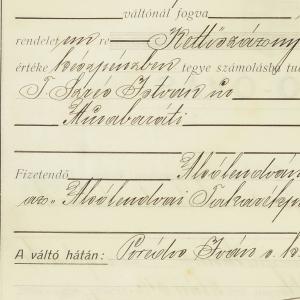 váltónál fogva
rendeletem re Kettőszázny
értéke készpénzben tegye számolásba
T. Szréo István úr
Murabaráti
Fizetendő Alsólendván
az „Alsólendvai Takarékp
A váltó hátán: Poredio Iván s. k.